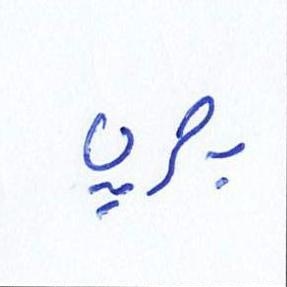 بحرين